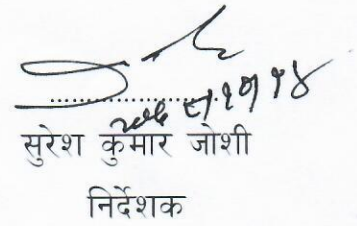 सुरेश कुमार जोशी
निर्देशक